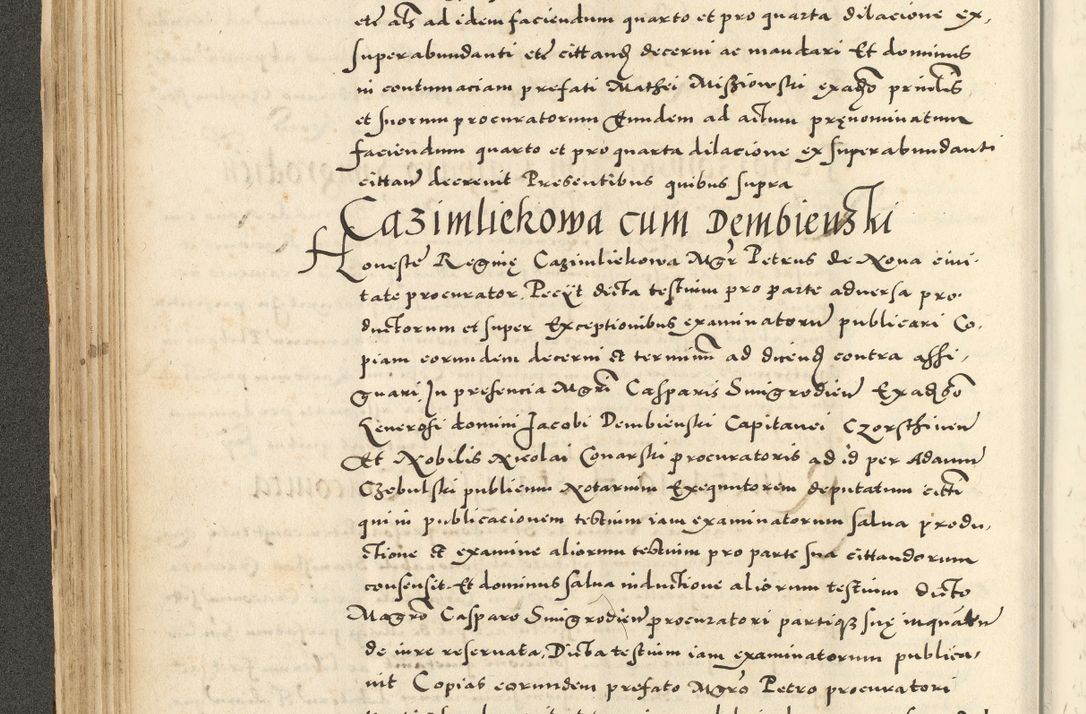 etc als ad idem faciendum quarto et pro quarta dilacione ex,
superabundanti etc cittand decerni ac mandari Et dominus
in contumaciam prefati Mathei Misziowski
et suorum procuratorum Eundem ad actum prenominatum
faciendum quarto et pro quarta dilacione ex superabundanti
cittan decrevit Presentibus quibus supra
Cazimliekowa cum Dembienski
Honeste Reginę Cazimliekowa Mgr Petrus de Nova civi-
tate procurator, Pecyt dicta testium pro parte adversa pro-
ductorum et super Exceptionibus examinatorum publicari Co-
piam eorundem decerni et terminum ad dicend contra assi-
gnari, In presencia Mgri Casparis Smigrodien
Generosi domini Jacobi Dembienski Capitanei Czorschtinen
Et Nobilis Nicolai Conarski procuratoris ad id per Adamum
Czebulski publicum Notarium Exequutorem deputatum citti
qui in publicacionem testium iam examinatorum salva produ-
ctione et examine aliorum testium pro parte sua cittandorum
consensit Et dominus salva inductione aliorum testium dicto
Magro Casparo Smigrodien procuratori partique suę inquantum
de iure reservata, Dicta testium iam examinatorum publica-
vit Copias eorundem prefato Mgro Petro procuratori